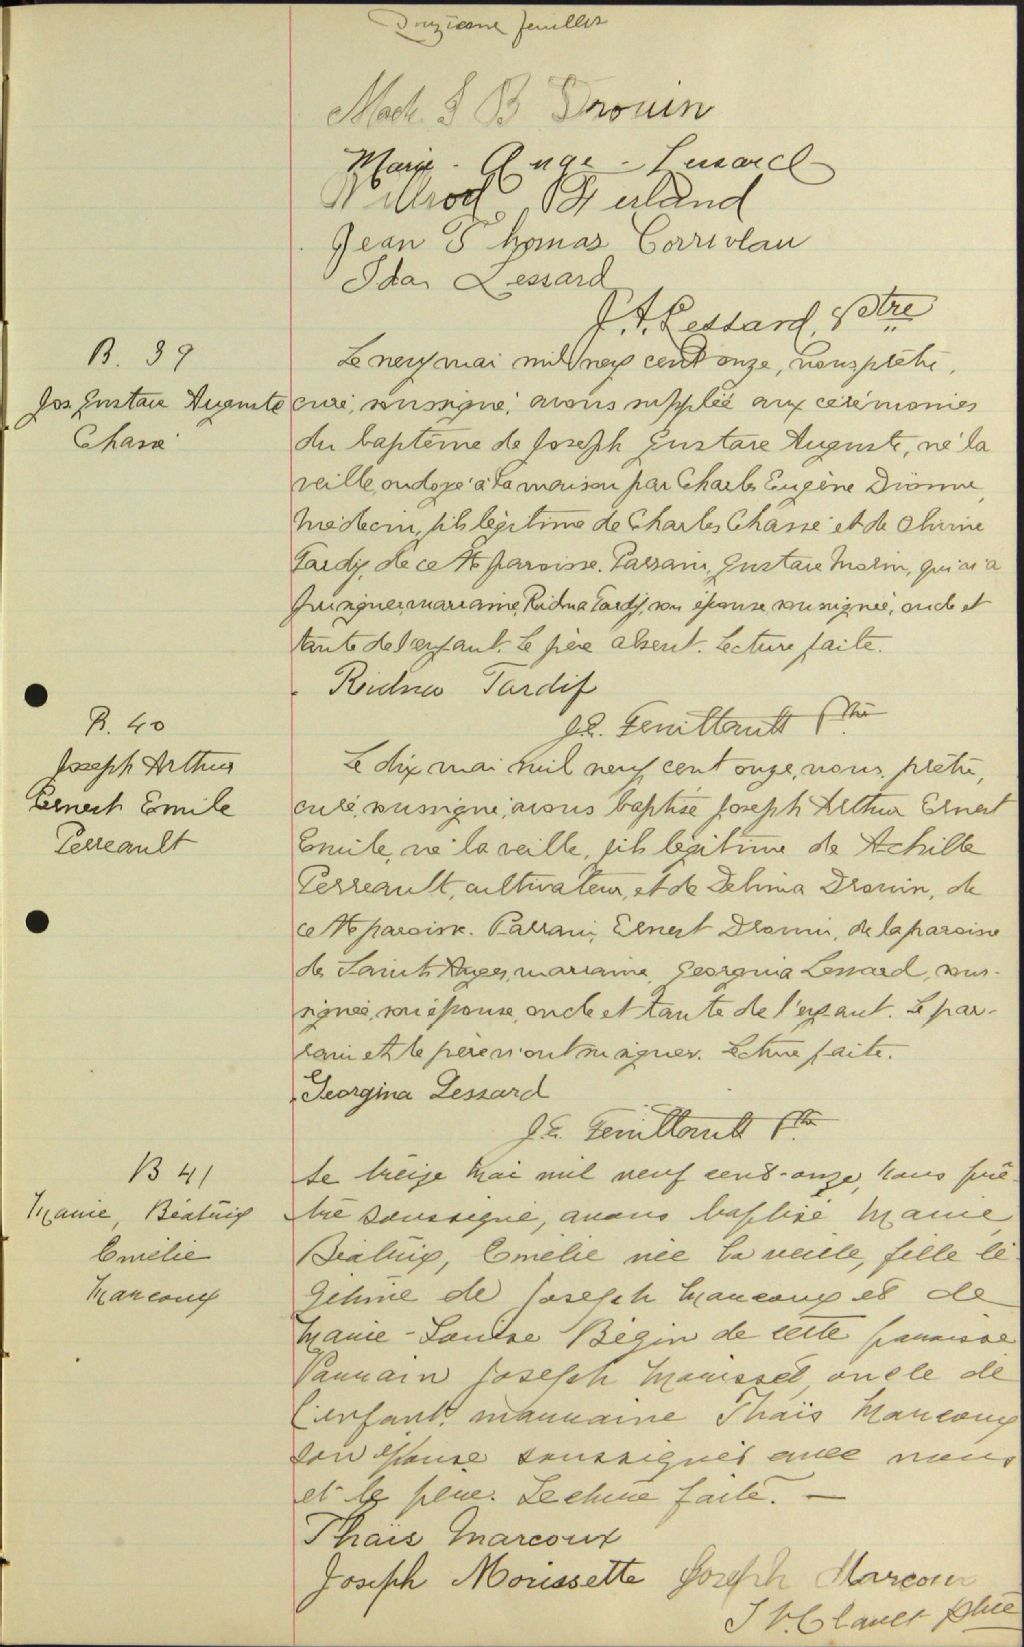 Douzième feuillet
Made J B Drouin
Marie-Ange-Lessard
Willrod Ferland
Jean Thomas Corriveau
Ida Lessard
J. A. Lessard, Ptre
B. 39
Jos Gustave Auguste
Chassé
Le neuf mai mil neuf cent onze, nous prêtre,
curé, soussigné, avons suppléé aux cérémonies
du baptême de Joseph Gustave Auguste, né la
veille, ondoyé à la maison par Charles Eugène Dionne,
médecin, fils légitime de Charles Chassé et de
Tardif, de cette paroisse. Parrain, Gustave Morin, qui n'a
pu signer, marraine, Ridna Tardif, son épouse, soussignée, oncle et
tante de l'enfant. Le père absent. Lecture faite.
Ridna Tardif
J. E. Feuiltault Ptre
B. 40
Joseph Arthur
Ernest Emile
Perreault
Le dix mai mil neuf cent onze, nous, prêtre,
curé, soussigné, avons baptisé Joseph Arthur Ernest
Emile, né la veille, fils légitime de Achille
Perreault, cultivateur, et de Delima Drouin, de
cette paroisse. Parrain, Ernest Drouin, de la paroisse
des Saints Anges, marraine, Georgina Lessard, sous-
signée, son épouse, oncle et tante de l'enfant. Le par-
rain et le père n'ont su signer. Lecture faite.
Georgina Lessard
J. E. Feuiltault Ptre
B 41
Marie, Béatrix
Emélie
Marcoux
Le treize mai mil neuf cent-onze, nous prê-
tre soussigné, avons baptisé Marie,
Béatrix, Emélie née la veille, fille lé-
gitime de Joseph Marcoux et de
Marie-Louise Bégin de cette paroisse
Parrain Joseph Morisset, oncle de
l'enfant, marraine Thaïs Marcoux
son épouse soussignés avec nous
et le père. Lecture faite. —
Thaïs Marcoux
Joseph Morissette Joseph Marcoux